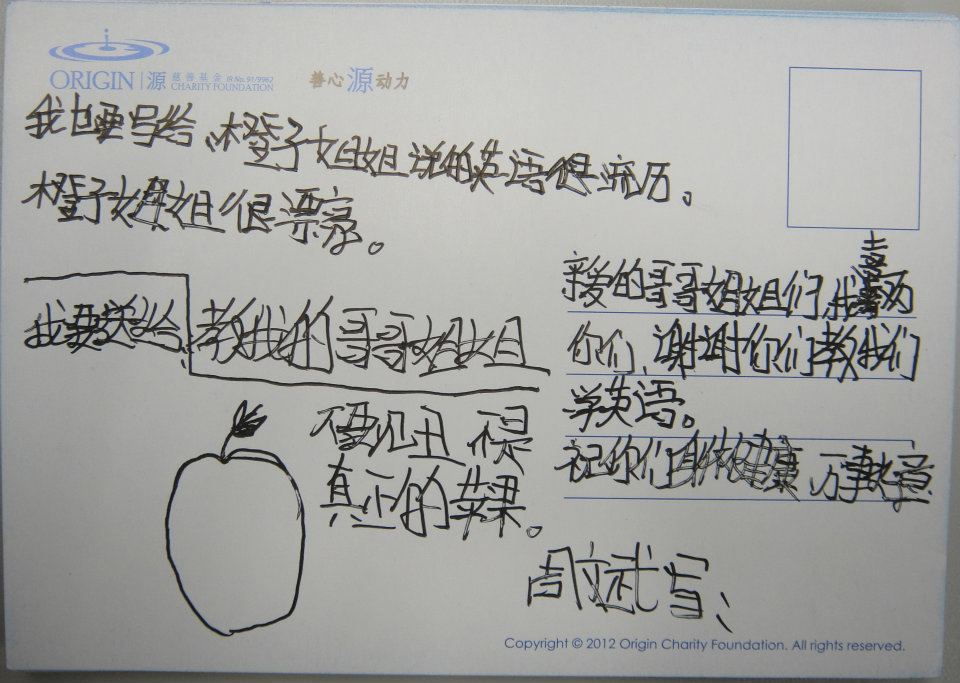 ORIGIN 源 慈善基金 IR No. 91/9962
CHARITY FOUNDATION
善心源动力
我也要写给、橙子姐姐说的英语很流历。
橙子姐姐很漂亮。
亲爱的哥哥姐姐们,我喜
你们,谢谢你们教我们
学英语。
祝你们身体健康 万事如意
我要送给 教我的哥哥姐姐
不要见丑 不是
真正的苹果。
周文武写
Copyright © 2012 Origin Charity Foundation. All rights reserved.